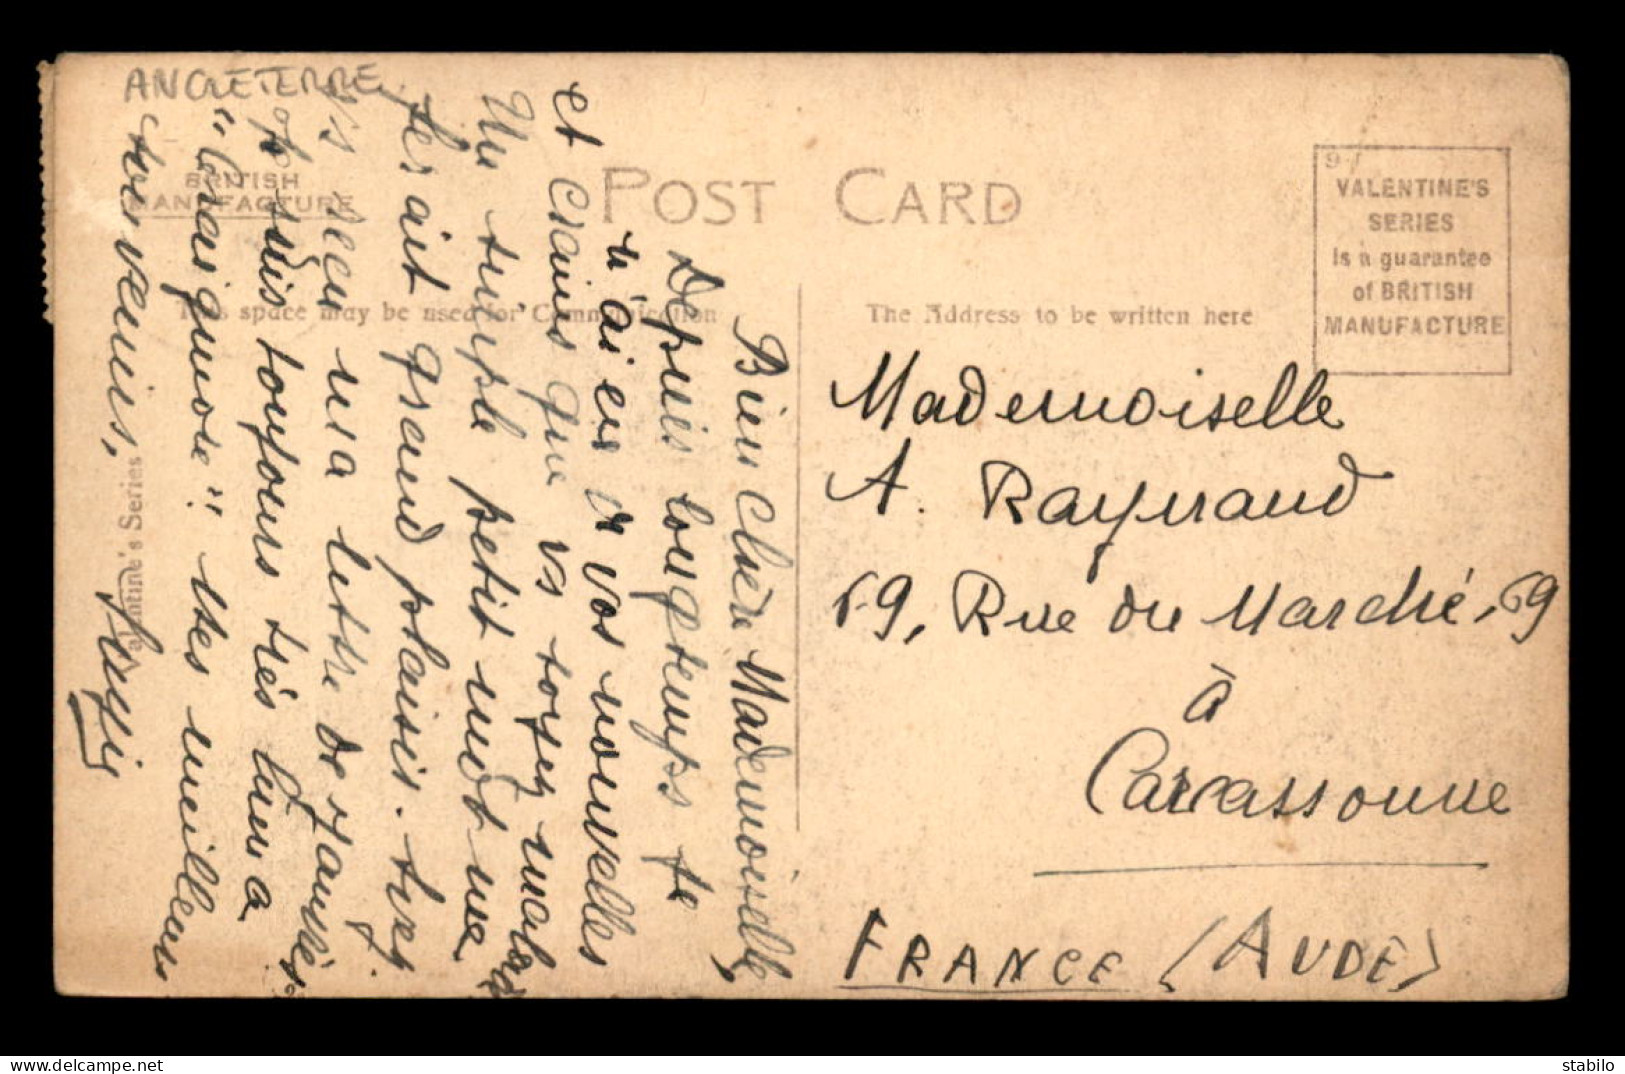 ANGLETERRE
BRITISH
MANUFACTURE
POST CARD
9
VALENTINE'S
SERIES
is a guarantee
of BRITISH
MANUFACTURE
This space may be used for Communication
The Address to be written here
Valentine's Series
Bien Chère Mademoiselle,
Depuis longtemps je
n'ai eu de vos nouvelles
et crains que vs soyez malade
Un simple petit mot me
ferait grand plaisir.
reçu ma lettre de
je suis toujours très
mes meilleurs
souvenirs,
Mademoiselle
A. Raynaud
69, Rue du Marché, 69
à
Carcassonne
FRANCE (AUDE)
delcampe.net
stabilo